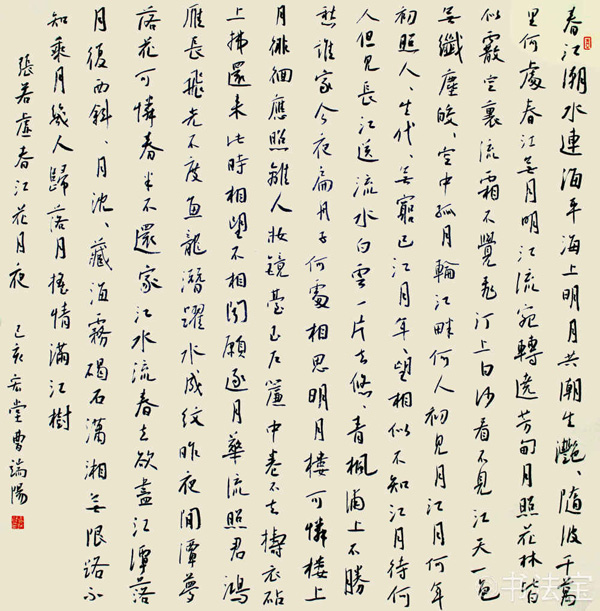 春江潮水連海平海上明月共潮生灩、隨波千萬
里何處春江無月明江流宛轉遶芳甸月照花林皆
似霰空裏流霜不覺飛汀上白沙看不見江天一色
無纖塵皎、空中孤月輪江畔何人初見月江月何年
初照人、生代、無窮已江月年、望相似不知江月待何
人但見長江送流水白雲一片去悠、青楓浦上不勝
愁誰家今夜扁舟子何處相思明月樓可憐樓上
月徘徊應照離人妝鏡臺玉戶簾中卷不去擣衣砧
上拂還來此時相望不相聞願逐月華流照君鴻
雁長飛光不度魚龍潛躍水成紋昨夜閒潭夢
落花可憐春半不還家江水流春去欲盡江潭落
月復西斜、月沈、藏海霧碣石瀟湘無限路不
知乘月幾人歸落月搖情滿江樹
張若虛春江花月夜 己亥 堂曹端陽
书法宝